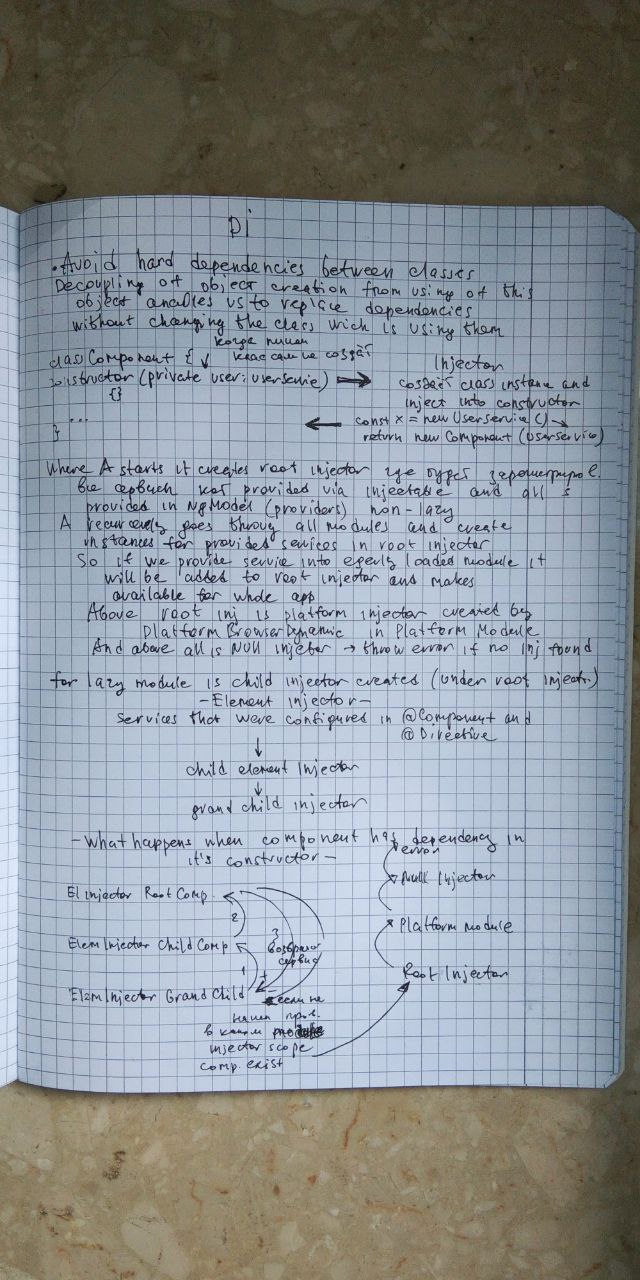 Di
• Avoid hard dependencies between classes
Decoupling of object creation from using of this
object anables us to replace dependencies
without changing the class wich is using them
когда пишем
class Component { ↓ класс сам не создаёт
constructor (private user: userservie) →
{}
...
}
Injector
создаёт class instane and
inject into constructor
← const x = new Userservice() →
return new Component (Userservice)
Where A starts it creates root injector где будут
все сервисы provided via injectable and all s
provided in NgModel (providers) non-lazy
A recursevely goes throug all modules and create
instances for provided sevices in root injector
So if we provide service into egerly loaded module it
will be added to root injector and makes
available for whole app
Above root inj is platform injector created by
Platform BrowserDynamic in Platform Module
And above all is Null injetor → throw error if no inj found
for lazy module is child injector created (under root inject.)
- Element injector -
Services that were configured in @Component and
@Directive
↓
child element Injector
↓
grand child injector
- What happens when component has dependency in
it's constructor -
El Injector Root Comp.
2
Elem Injector Child Comp
1
Elem Injector Grand Child
3
возвращает
сервис
если не
нашел пров.
в каком
injector scope
comp. exist
error
Null Injector
Platform module
Root Injector